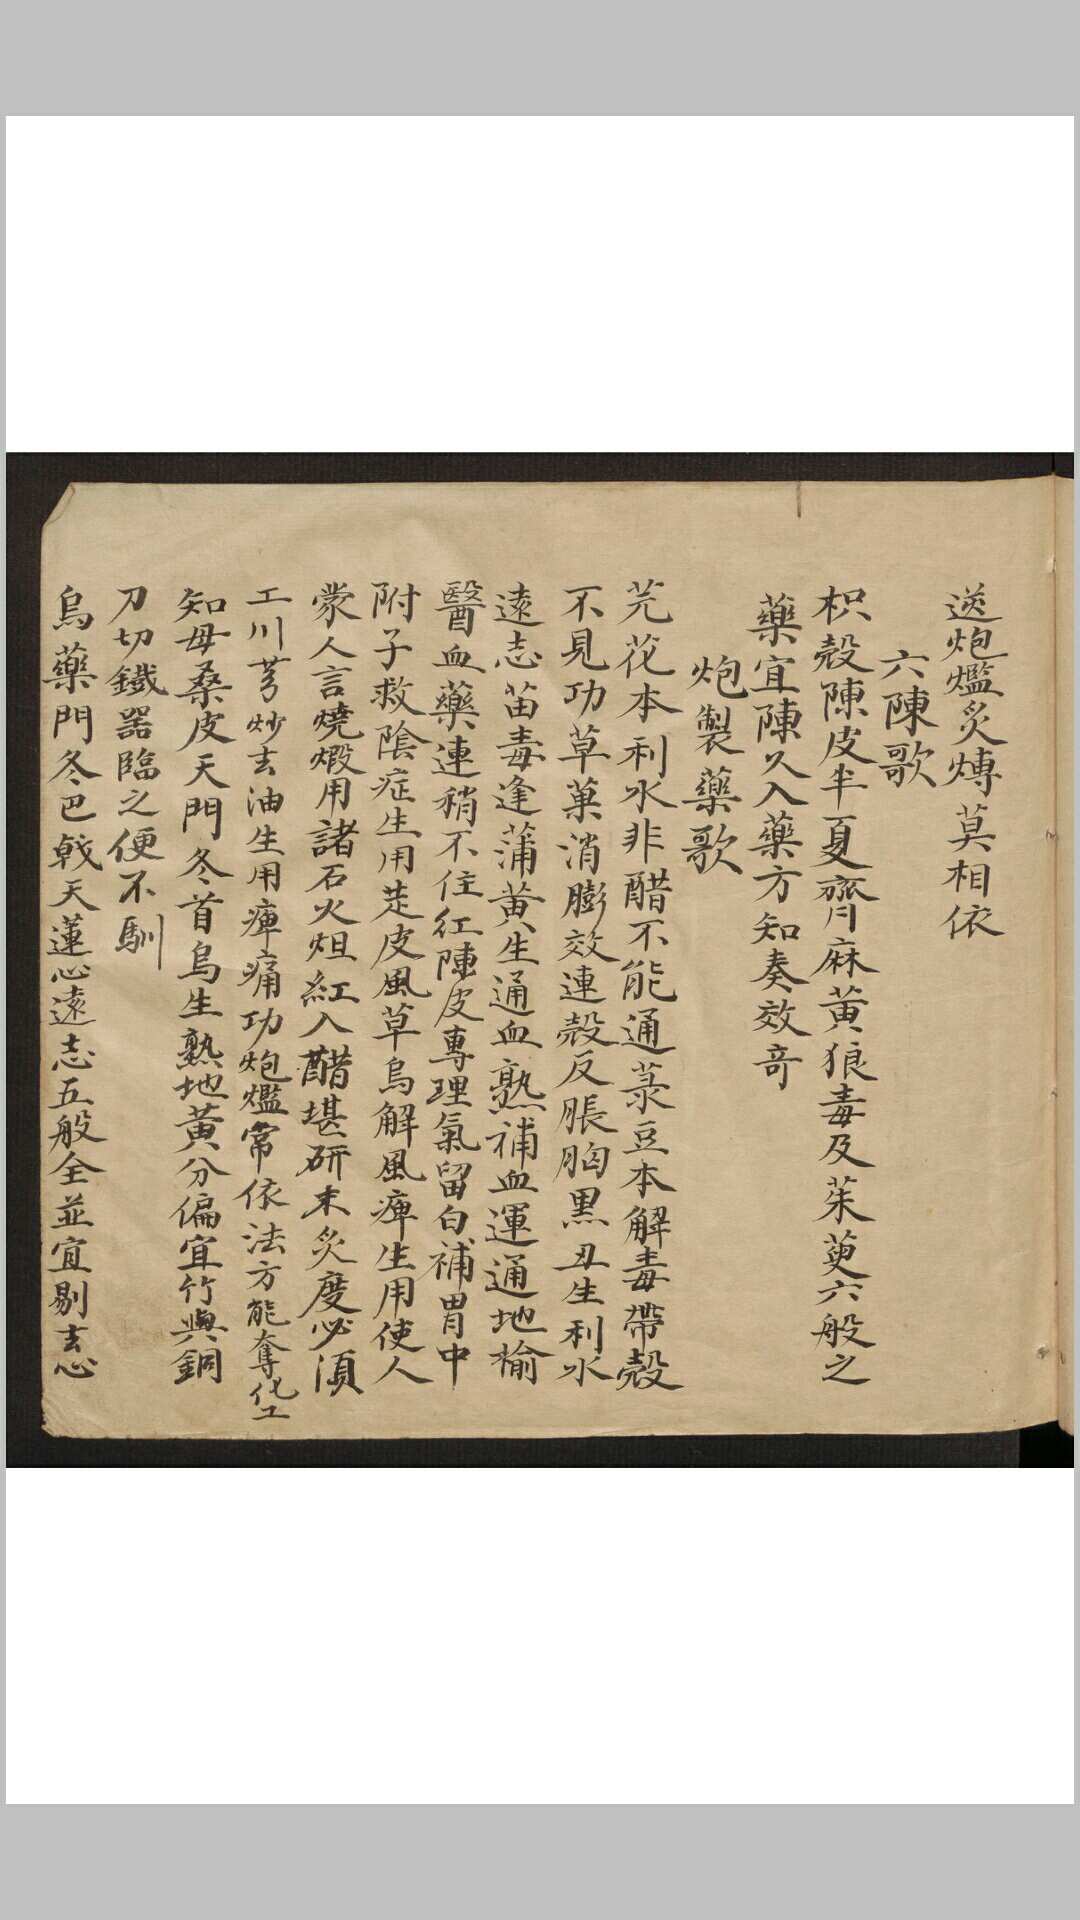 逆炮爁炙煿莫相依
六陳歌
枳殼陳皮半夏齊麻黄狼毒及茱萸六般之
藥宜陳久入藥方知奏效竒
炮製藥歌
芫花本利水非醋不能通菉豆本解毒帶殼
不見功草菓消膨效連殼反脹胸黒丑生利水
逺志苗毒逢蒲黄生通血熟補血運通地榆
醫血藥連稍不住红陳皮專理氣留白補胃中
附子救隂症生用走皮風草烏解風痺生用使人
蒙人言燒煅用諸石火炟紅入醋堪研末炙度必須
工川芎炒去油生用痺痛功炮爁常依法方能奪化工
知母桑皮天門冬首烏生熟地黄分偏宜竹與銅
刀切鐵器臨之便不馴
烏藥門冬巴戟天蓮心逺志五般全並宜剔去心